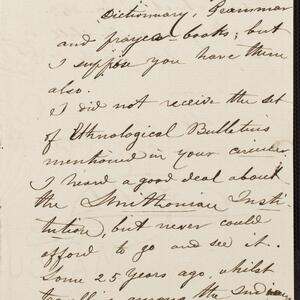 Dictionary, Grammar
and prayer-books; but
I suppose you have them
also.
I did not receive the set
of Ethnological Bulletins
mentioned in your circular.
I heard a good deal about
the Smithonian Insti-
tution, but never could
afford to go and see it.
Some 25 years ago, whilst
travelling among the Indians